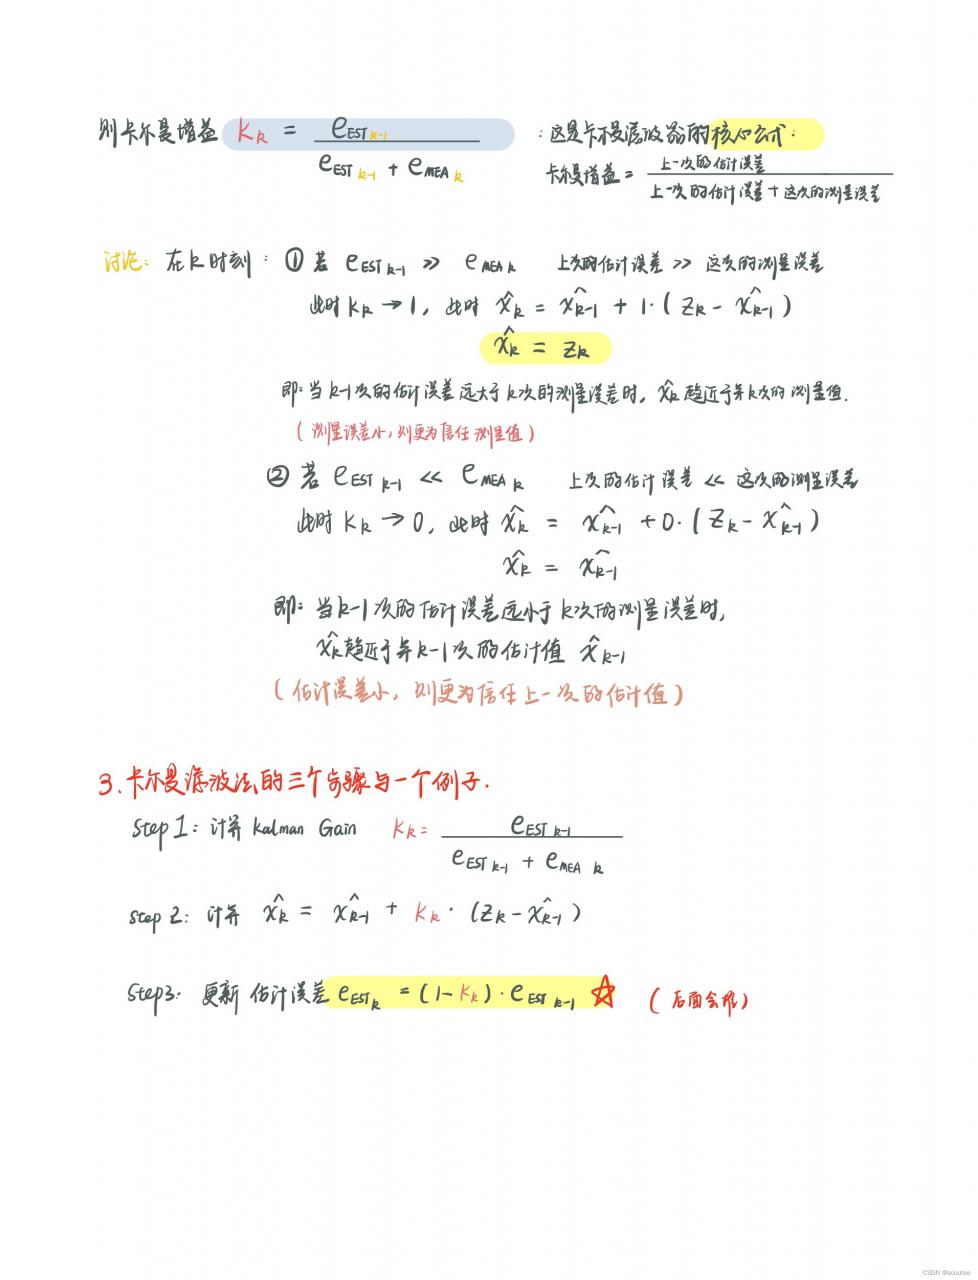 则卡尔曼增益 K_k = e_EST k-1 / (e_EST k-1 + e_MEA k) : 这是卡尔曼滤波器的核心公式:
卡尔曼增益 = 上一次的估计误差 / (上一次的估计误差 + 这次的测量误差)
讨论: 在k时刻: ① 若 e_EST k-1 >> e_MEA k 上次的估计误差 >> 这次的测量误差
此时 K_k → 1, 此时 x̂_k = x̂_k-1 + 1·(z_k - x̂_k-1)
x̂_k = z_k
即: 当k-1次的估计误差远大于k次的测量误差时, x̂_k 趋近于第k次的测量值.
(测量误差小, 则更为信任测量值)
② 若 e_EST k-1 << e_MEA k 上次的估计误差 << 这次的测量误差
此时 K_k → 0, 此时 x̂_k = x̂_k-1 + 0·(z_k - x̂_k-1)
x̂_k = x̂_k-1
即: 当k-1次的估计误差远小于k次的测量误差时,
x̂_k 趋近于第k-1次的估计值 x̂_k-1
(估计误差小, 则更为信任上一次的估计值)
3.卡尔曼滤波法的三个步骤与一个例子.
Step 1: 计算 Kalman Gain K_k = e_EST k-1 / (e_EST k-1 + e_MEA k)
Step 2: 计算 x̂_k = x̂_k-1 + K_k·(z_k - x̂_k-1)
Step3: 更新 估计误差 e_EST k = (1-K_k)·e_EST k-1 ☆ (后面会推)